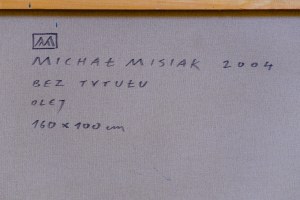 MICHAŁ MISIAK 2004
BEZ TYTUŁU
OLEJ
160 x 100 cm